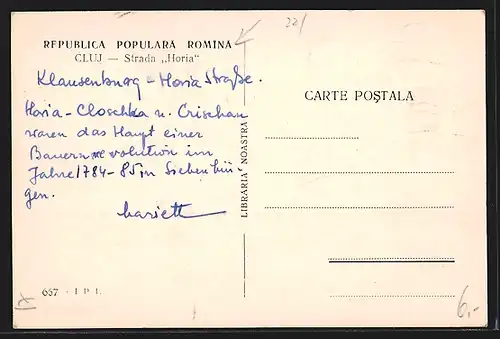 22/
REPUBLICA POPULARĂ ROMÎNĂ
CLUJ — Strada „Horia"
Klausenburg - Horia Straße.
CARTE POȘTALA
Horia - Closchka u. Crischan
waren das Haupt einer
Bauernrevolution im
Jahre 1784-85 in Siebenbür-
gen.
Mariett
LIBRĂRIA NOASTRĂ
657 - I P I.
6,-